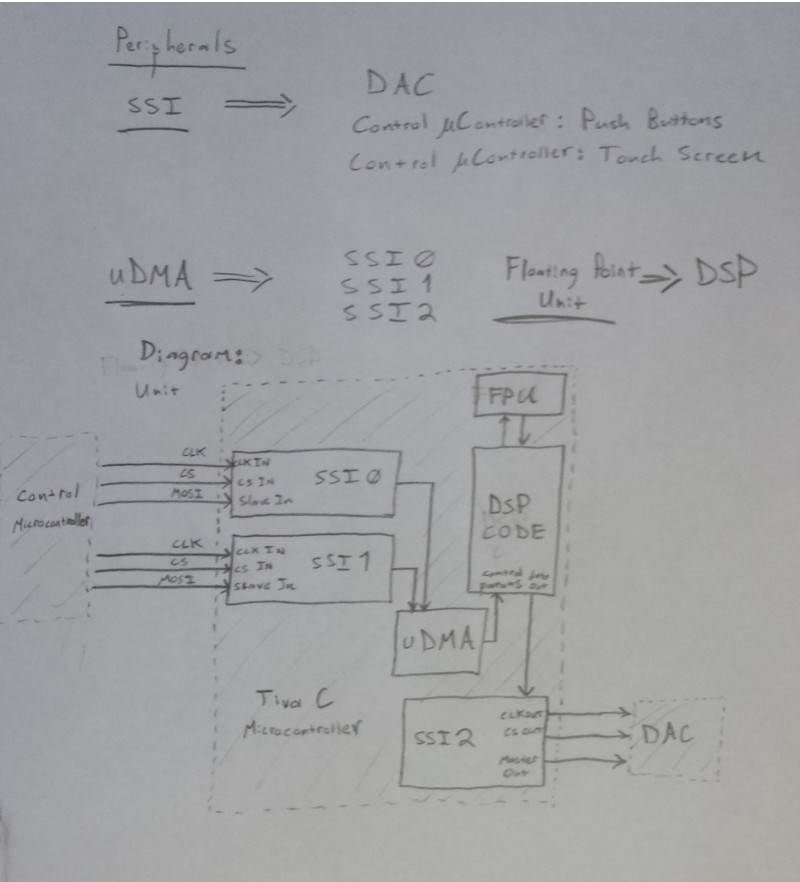 Peripherals
SSI ⇒ DAC
Control µController: Push Buttons
Control µController: Touch Screen
uDMA ⇒ SSI0
SSI1
SSI2
Floating Point Unit ⇒ DSP
Diagram:
Unit
FPU
Control
Microcontroller
CLK
CS
MOSI
CLK IN
CS IN
Slave In
SSI0
CLK
CS
MOSI
CLK IN
CS IN
Slave In
SSI1
DSP
CODE
control params
data out
uDMA
Tiva C
Microcontroller
SSI2
CLKOUT
CS OUT
Master
Out
DAC